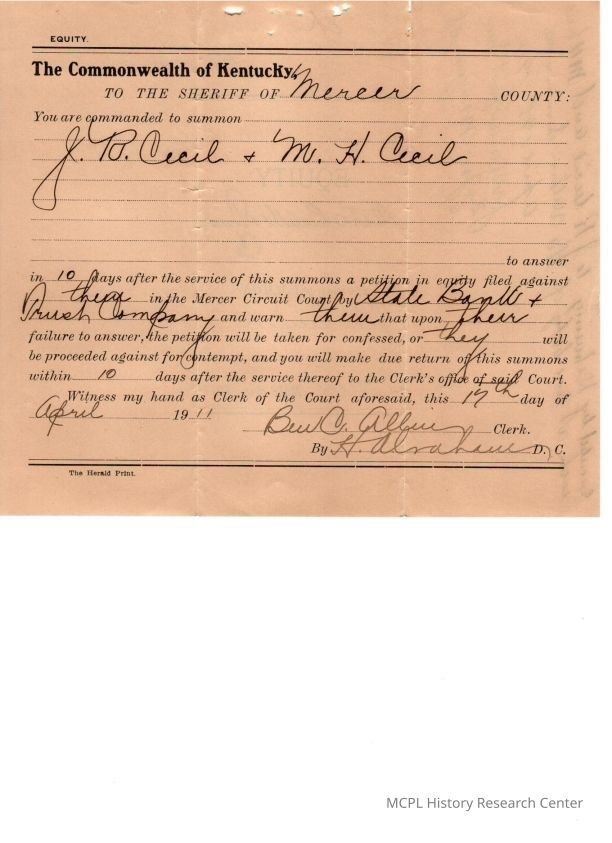 EQUITY.
The Commonwealth of Kentucky,
TO THE SHERIFF OF Mercer COUNTY:
You are commanded to summon
J. B. Cecil + M. H. Cecil
to answer
in 10 days after the service of this summons a petition in equity filed against
them in the Mercer Circuit Court by State Bank +
Trust Company and warn them that upon Their
failure to answer, the petition will be taken for confessed, or they will
be proceeded against for contempt, and you will make due return of this summons
within 10 days after the service thereof to the Clerk's office of said Court.
Witness my hand as Clerk of the Court aforesaid, this 17th day of
April 1911
Ben C. Allin Clerk.
By H. Abraham D. C.
The Herald Print.
MCPL History Research Center